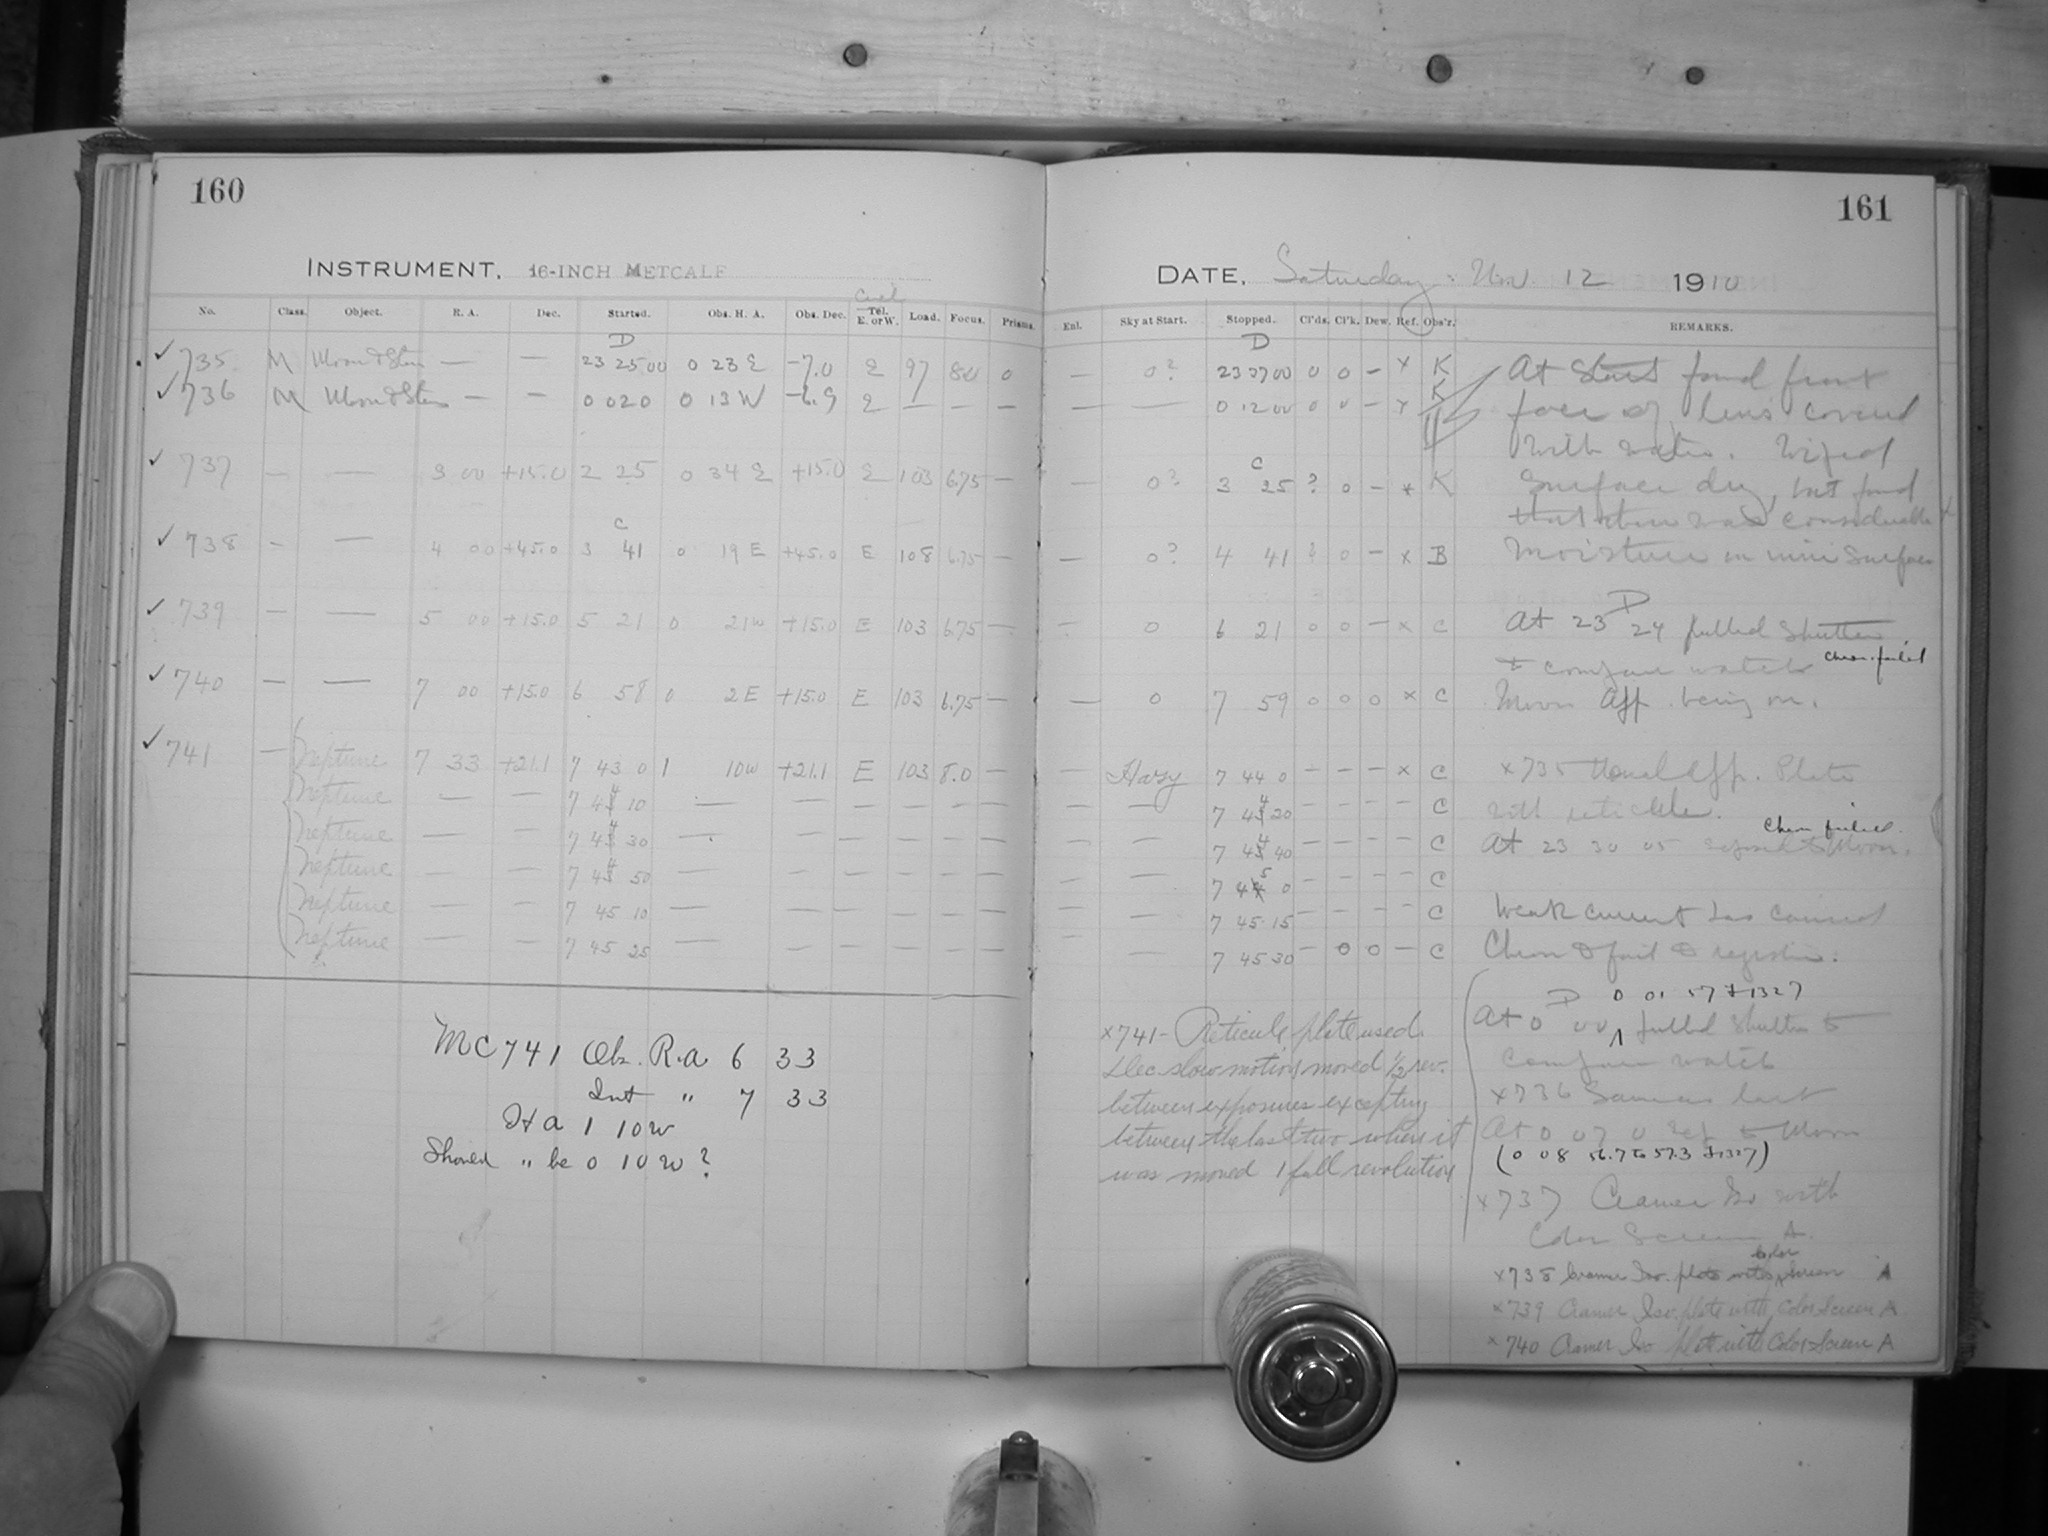 160
INSTRUMENT. 16-INCH METCALF
No. Class. Object. R. A. Dec. Started. Obs. H. A. Obs. Dec. Tel. E. or W. Load. Focus. Prisms.
D
✓ 735 M Moon & Stars — — 23 25 00 0 23 E -7.0 E 97 8.0 0
✓ 736 M Moon & Stars — — 0 02 0 0 13 W -6.9 E — — —
✓ 737 — — 3 00 +15.0 2 25 0 34 E +15.0 E 103 6.75 —
C
✓ 738 — — 4 00 +45.0 3 41 0 19 E +45.0 E 108 6.75 —
✓ 739 — — 5 00 +15.0 5 21 0 21 W +15.0 E 103 6.75 —
✓ 740 — — 7 00 +15.0 6 58 0 2 E +15.0 E 103 6.75 —
✓ 741 — Neptune 7 33 +21.1 7 43 0 1 10 W +21.1 E 103 8.0 —
Neptune — — 7 44 10 — — — — — —
Neptune — — 7 44 30 — — — — — —
Neptune — — 7 44 50 — — — — — —
Neptune — — 7 45 10 — — — — — —
Neptune — — 7 45 25 — — — — — —
MC 741 Obs. R.a 6 33
Int " 7 33
Ha 1 10 W
Should " be 0 10 W ?
161
DATE. Saturday Nov 12 1910
Enl. Sky at Start. Stopped. Cl'ds. Cl'k. Dew. Ref. Obs'r. REMARKS.
D
— 0? 23 37 00 0 0 — x K
— — 0 12 00 0 0 — x K
C
— 0? 3 25 ? 0 — x K
— 0? 4 41 ? 0 — x B
— 0 6 21 0 0 — x C
— 0 7 59 0 0 0 x C
— Hazy 7 44 0 — — — x C
— — 7 44 20 — — — — C
— — 7 44 40 — — — — C
— — 7 45 0 — — — — C
— — 7 45 15 — — — — C
— 7 45 30 — 0 0 — C
x741- Reticule plate used.
Dec slow motion moved 1/2 rev.
between exposures excepting
between the last two when it
was moved 1 full revolution
At Start found front
face of lens covered
with water. Wiped
Surface dry, but found
that there was considerable
moisture on inner surface
At 23 D 24 pulled Shutter
to compare watch chron. failed
Moon App. being on.
x735 Usual App. Plate
with reticule.
Chron failed.
At 23 30 05 exposed to Moon.
Weak current has caused
Chron to fail to register.
D 0 01 57 F1327
At 0 00 pulled Shutter to
compare watch
x736 Same as last
At 0 07 0 exp to Moon
(0 08 56.7 to 57.3 F1327)
x737 Cramer Iso with
Color Screen A.
x738 Cramer Iso. plate with color screen A
x739 Cramer Iso. plate with Color Screen A
x740 Cramer Iso plate with Color Screen A